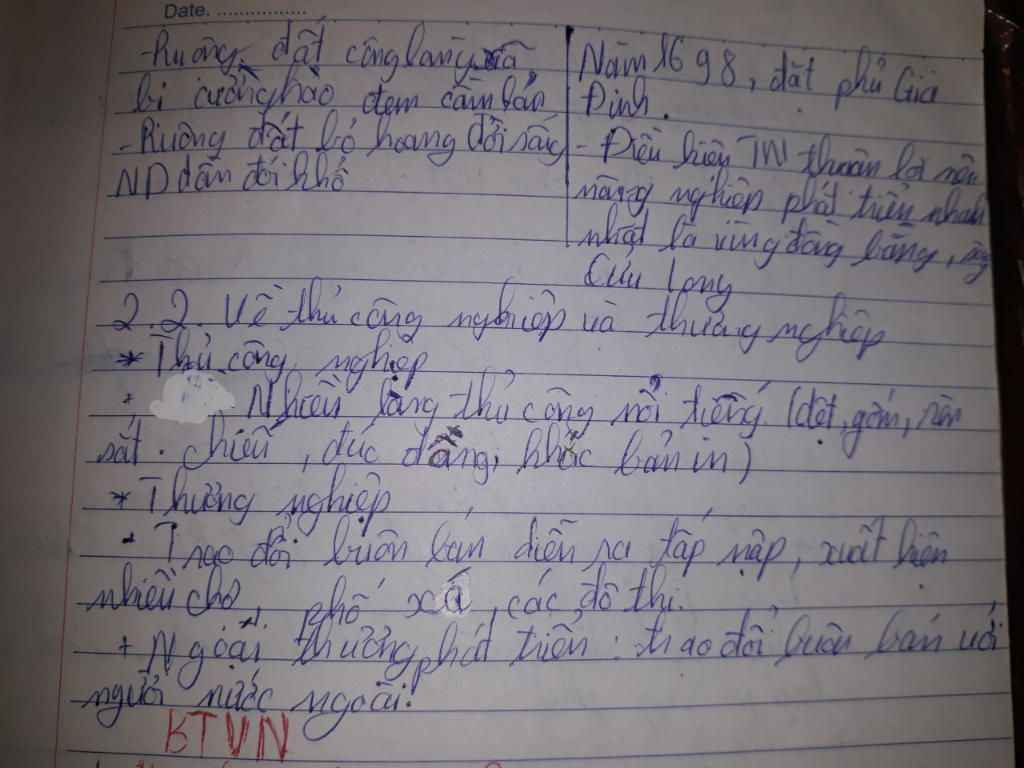 Date. ................
- Ruộng đất công làng xã
bị cường hào đem cầm bán
- Ruộng đất bỏ hoang đời sống
ND dần đói khổ
Năm 1698, đặt phủ Gia
Định.
- Điều kiện TN thuận lợi nên
nông nghiệp phát triển nhanh
nhất là vùng đồng bằng, sông
Cửu Long
2.2. Về thủ công nghiệp và thương nghiệp
* Thủ công nghiệp
+ Nhiều làng thủ công nổi tiếng (dệt, gốm, rèn
sắt. chiếu, đúc đồng, khắc bản in)
* Thương nghiệp
- Trao đổi buôn bán diễn ra tấp nập, xuất hiện
nhiều chợ, phố xá, các đô thị.
+ Ngoại thương phát triển : trao đổi buôn bán với
người nước ngoài.
KTVN